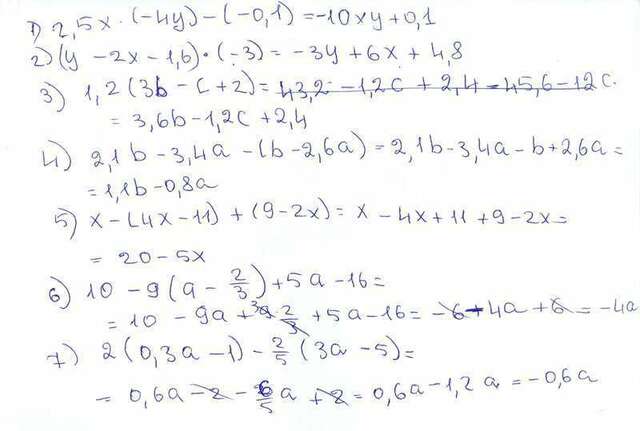 1) 2,5x · (-4y) - (-0,1) = -10xy + 0,1
2) (y - 2x - 1,6) · (-3) = -3y + 6x + 4,8
3) 1,2 (3b - c + 2) = 43,2 - 1,2c + 2,4 - 45,6 - 12c
= 3,6b - 1,2c + 2,4
4) 2,1b - 3,4a - (b - 2,6a) = 2,1b - 3,4a - b + 2,6a =
= 1,1b - 0,8a
5) x - (4x - 11) + (9 - 2x) = x - 4x + 11 + 9 - 2x =
= 20 - 5x
6) 10 - 9(a - 2/3) + 5a - 16 =
= 10 - 9a + 9 · 2/3 + 5a - 16 = -6 - 4a + 6 = -4a
7) 2 (0,3a - 1) - 2/5 (3a - 5) =
= 0,6a - 2 - 6/5 a + 2 = 0,6a - 1,2a = -0,6a